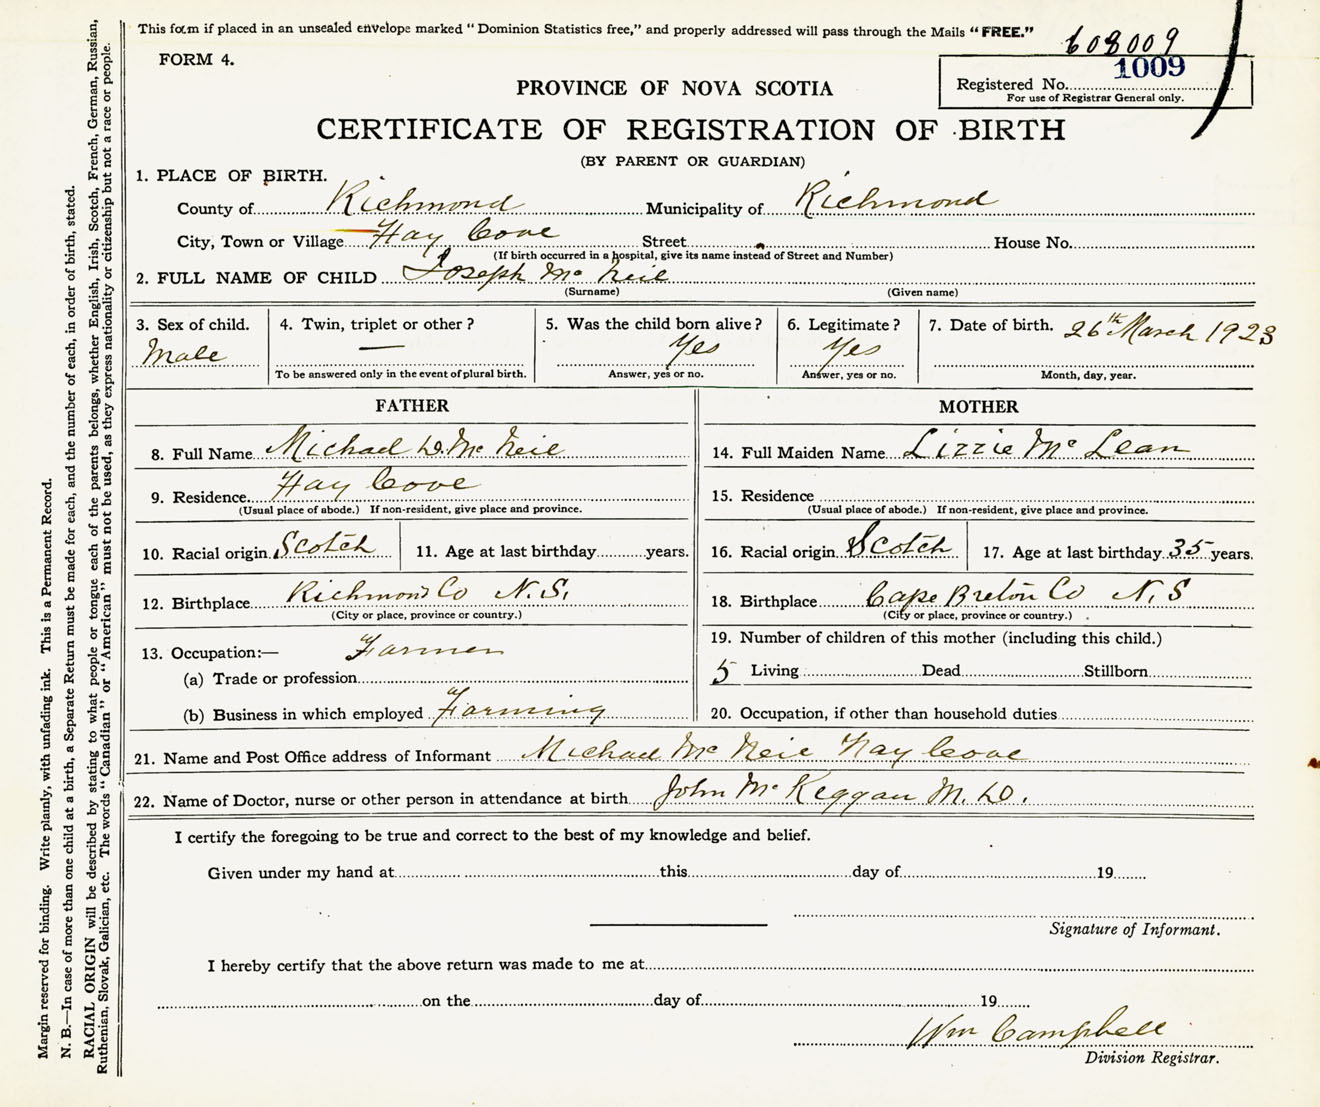 This form if placed in an unsealed envelope marked "Dominion Statistics free," and properly addressed will pass through the Mails "FREE."
608009
FORM 4.
1009
Registered No.
For use of Registrar General only.
PROVINCE OF NOVA SCOTIA
CERTIFICATE OF REGISTRATION OF BIRTH
(BY PARENT OR GUARDIAN)
1. PLACE OF BIRTH.
County of Richmond Municipality of Richmond
City, Town or Village Hay Cove Street House No.
(If birth occurred in a hospital, give its name instead of Street and Number)
2. FULL NAME OF CHILD Joseph Mc Neil
(Surname) (Given name)
3. Sex of child. 4. Twin, triplet or other? 5. Was the child born alive? 6. Legitimate? 7. Date of birth. 26th March 1923
Male — Yes Yes
To be answered only in the event of plural birth. Answer, yes or no. Answer, yes or no. Month, day, year.
FATHER MOTHER
8. Full Name Michael D. Mc Neil 14. Full Maiden Name Lizzie Mc Lean
9. Residence Hay Cove 15. Residence
(Usual place of abode.) If non-resident, give place and province. (Usual place of abode.) If non-resident, give place and province.
10. Racial origin Scotch 11. Age at last birthday years. 16. Racial origin Scotch 17. Age at last birthday 35 years.
12. Birthplace Richmond Co N.S. 18. Birthplace Cape Breton Co N.S
(City or place, province or country.) (City or place, province or country.)
13. Occupation:— Farmer 19. Number of children of this mother (including this child.)
(a) Trade or profession 5 Living Dead Stillborn
(b) Business in which employed Farming 20. Occupation, if other than household duties
21. Name and Post Office address of Informant Michael Mc Neil Hay Cove
22. Name of Doctor, nurse or other person in attendance at birth John McKeggan M.D.
I certify the foregoing to be true and correct to the best of my knowledge and belief.
Given under my hand at this day of 19
Signature of Informant.
I hereby certify that the above return was made to me at
on the day of 19
Wm Campbell
Division Registrar.
Margin reserved for binding. Write plainly, with unfading ink. This is a Permanent Record.
N. B.—In case of more than one child at a birth, a Separate Return must be made for each, and the number of each, in order of birth, stated.
RACIAL ORIGIN will be described by stating to what people or tongue each of the parents belongs, whether English, Irish, Scotch, French, German, Russian,
Ruthenian, Slovak, Galician, etc. The words "Canadian" or "American" must not be used, as they express nationality or citizenship but not a race or people.